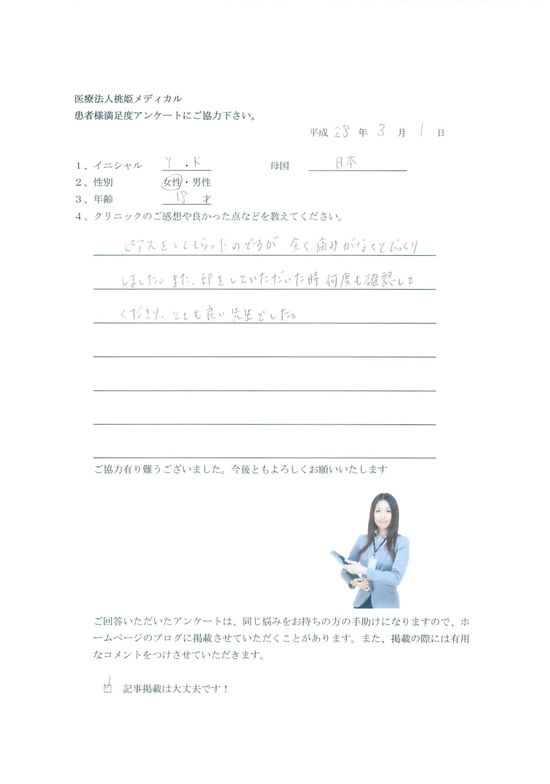 医療法人桃姫メディカル
患者様満足度アンケートにご協力下さい。
平成 28 年 3 月 1 日
1、イニシャル Y ・ K 母国 日本
2、性別 女性・男性
3、年齢 15 才
4、クリニックのご感想や良かった点などを教えてください。
ピアスをしてもらったのですが、全く痛みがなくてびっくり
しました。また、印をしていただいた時何度も確認して
くださり、とても良い先生でした。
ご協力有り難うございました。今後ともよろしくお願いいたします
ご回答いただいたアンケートは、同じ悩みをお持ちの方の手助けになりますので、ホ
ームページのブログに掲載させていただくことがあります。また、掲載の際には有用
なコメントをつけさせていただきます。
☑ 記事掲載は大丈夫です！